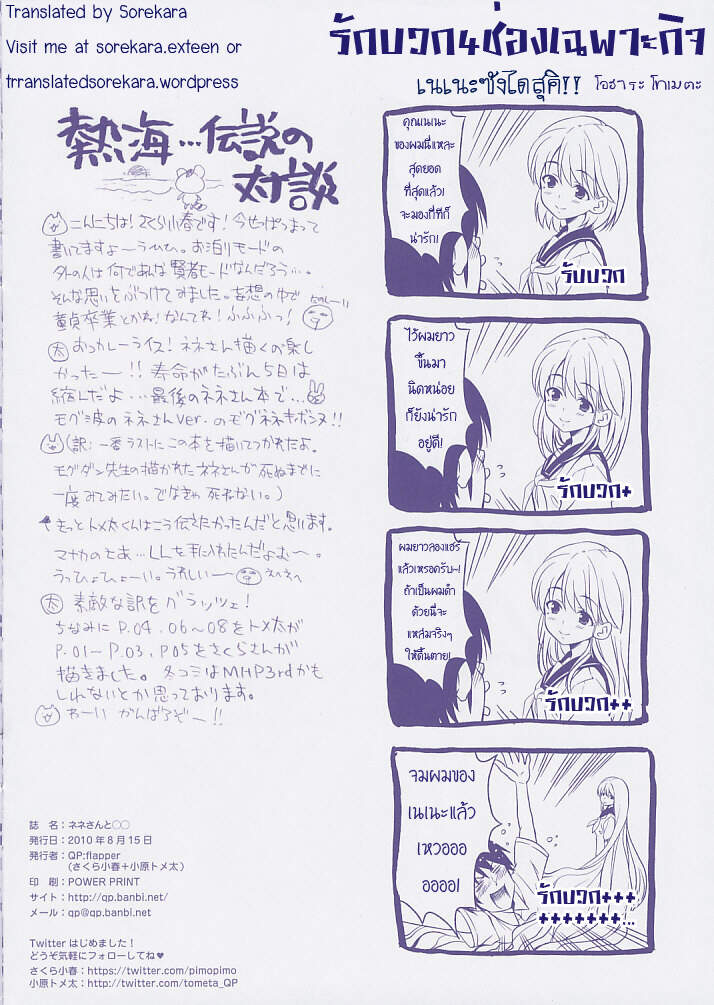 Translated by Sorekara
Visit me at sorekara.exteen or
trranslatedsorekara.wordpress
รักบวก4ช่องเฉพาะกิจ
เนเนะซังไดสุคิ!! โอฮาระ โทเมตะ
熱海…伝説の
対談
こんにちは!さくら小春です!今せっぱつまって
書いてますよーうひひ。お泊りモードの
外の人は何であんな賢者モードなんだろう…。
そんな思いをぶつけてみました。妄想の中で
童貞卒業とかね!なんてね!ふふふっ!
太 おつカレーライス!ネネさん描くの楽し
かったー!!寿命がたぶん5日は
縮んだよ…最後のネネさん本で…
モグミ波のネネさんver.のモグネネキボンヌ!!
(訳:一番ラストにこの本を描いてつかれたよ。
モグダン先生の描かれたネネさんが死ぬまでに
一度みてみたい。でなきゃ死ねない。)
きっとトメ太くんはこう伝えたかったんだと思います。
マナカのとあ…LLを手に入れたんだよむ〜。
うっひょひょーい。うれしいー
太 素敵な訳をグラッツェ!
ちなみにP.04、06〜08をトメ太が
P.01〜P.03、P05をさくらさんが
描きました。冬コミはMHP3rdかも
しれないとか思っております。
わーい がんばるぞー!!
คุณเนเนะ
ของผมนี่แหละ
สุดยอด
ที่สุดแล้ว!
จะมองกี่ทีก็
น่ารัก!
รักบวก
ไว้ผมยาว
ขึ้นมา
นิดหน่อย
ก็ยังน่ารัก
อยู่ดี!
รักบวก+
ผมยาวลองแฮร์
แล้วเหรอครับ~!
ถ้าเป็นผมดำ
ด้วยนี่จะ
แหล่มจริงๆ
ให้ดิ้นตาย!
รักบวก++
จมผมของ
เนเนะแล้ว
เหวอออ
ออออ!
รักบวก+++
+++++++...
誌 名:ネネさんと○○
発行日:2010年8月15日
発行者:QP:flapper
(さくら小春+小原トメ太)
印 刷:POWER PRINT
サイト:http://qp.banbi.net/
メール:qp@qp.banbi.net
Twitter はじめました!
どうぞ気軽にフォローしてね♥
さくら小春:https://twitter.com/pimopimo
小原トメ太:http://twitter.com/tometa_QP